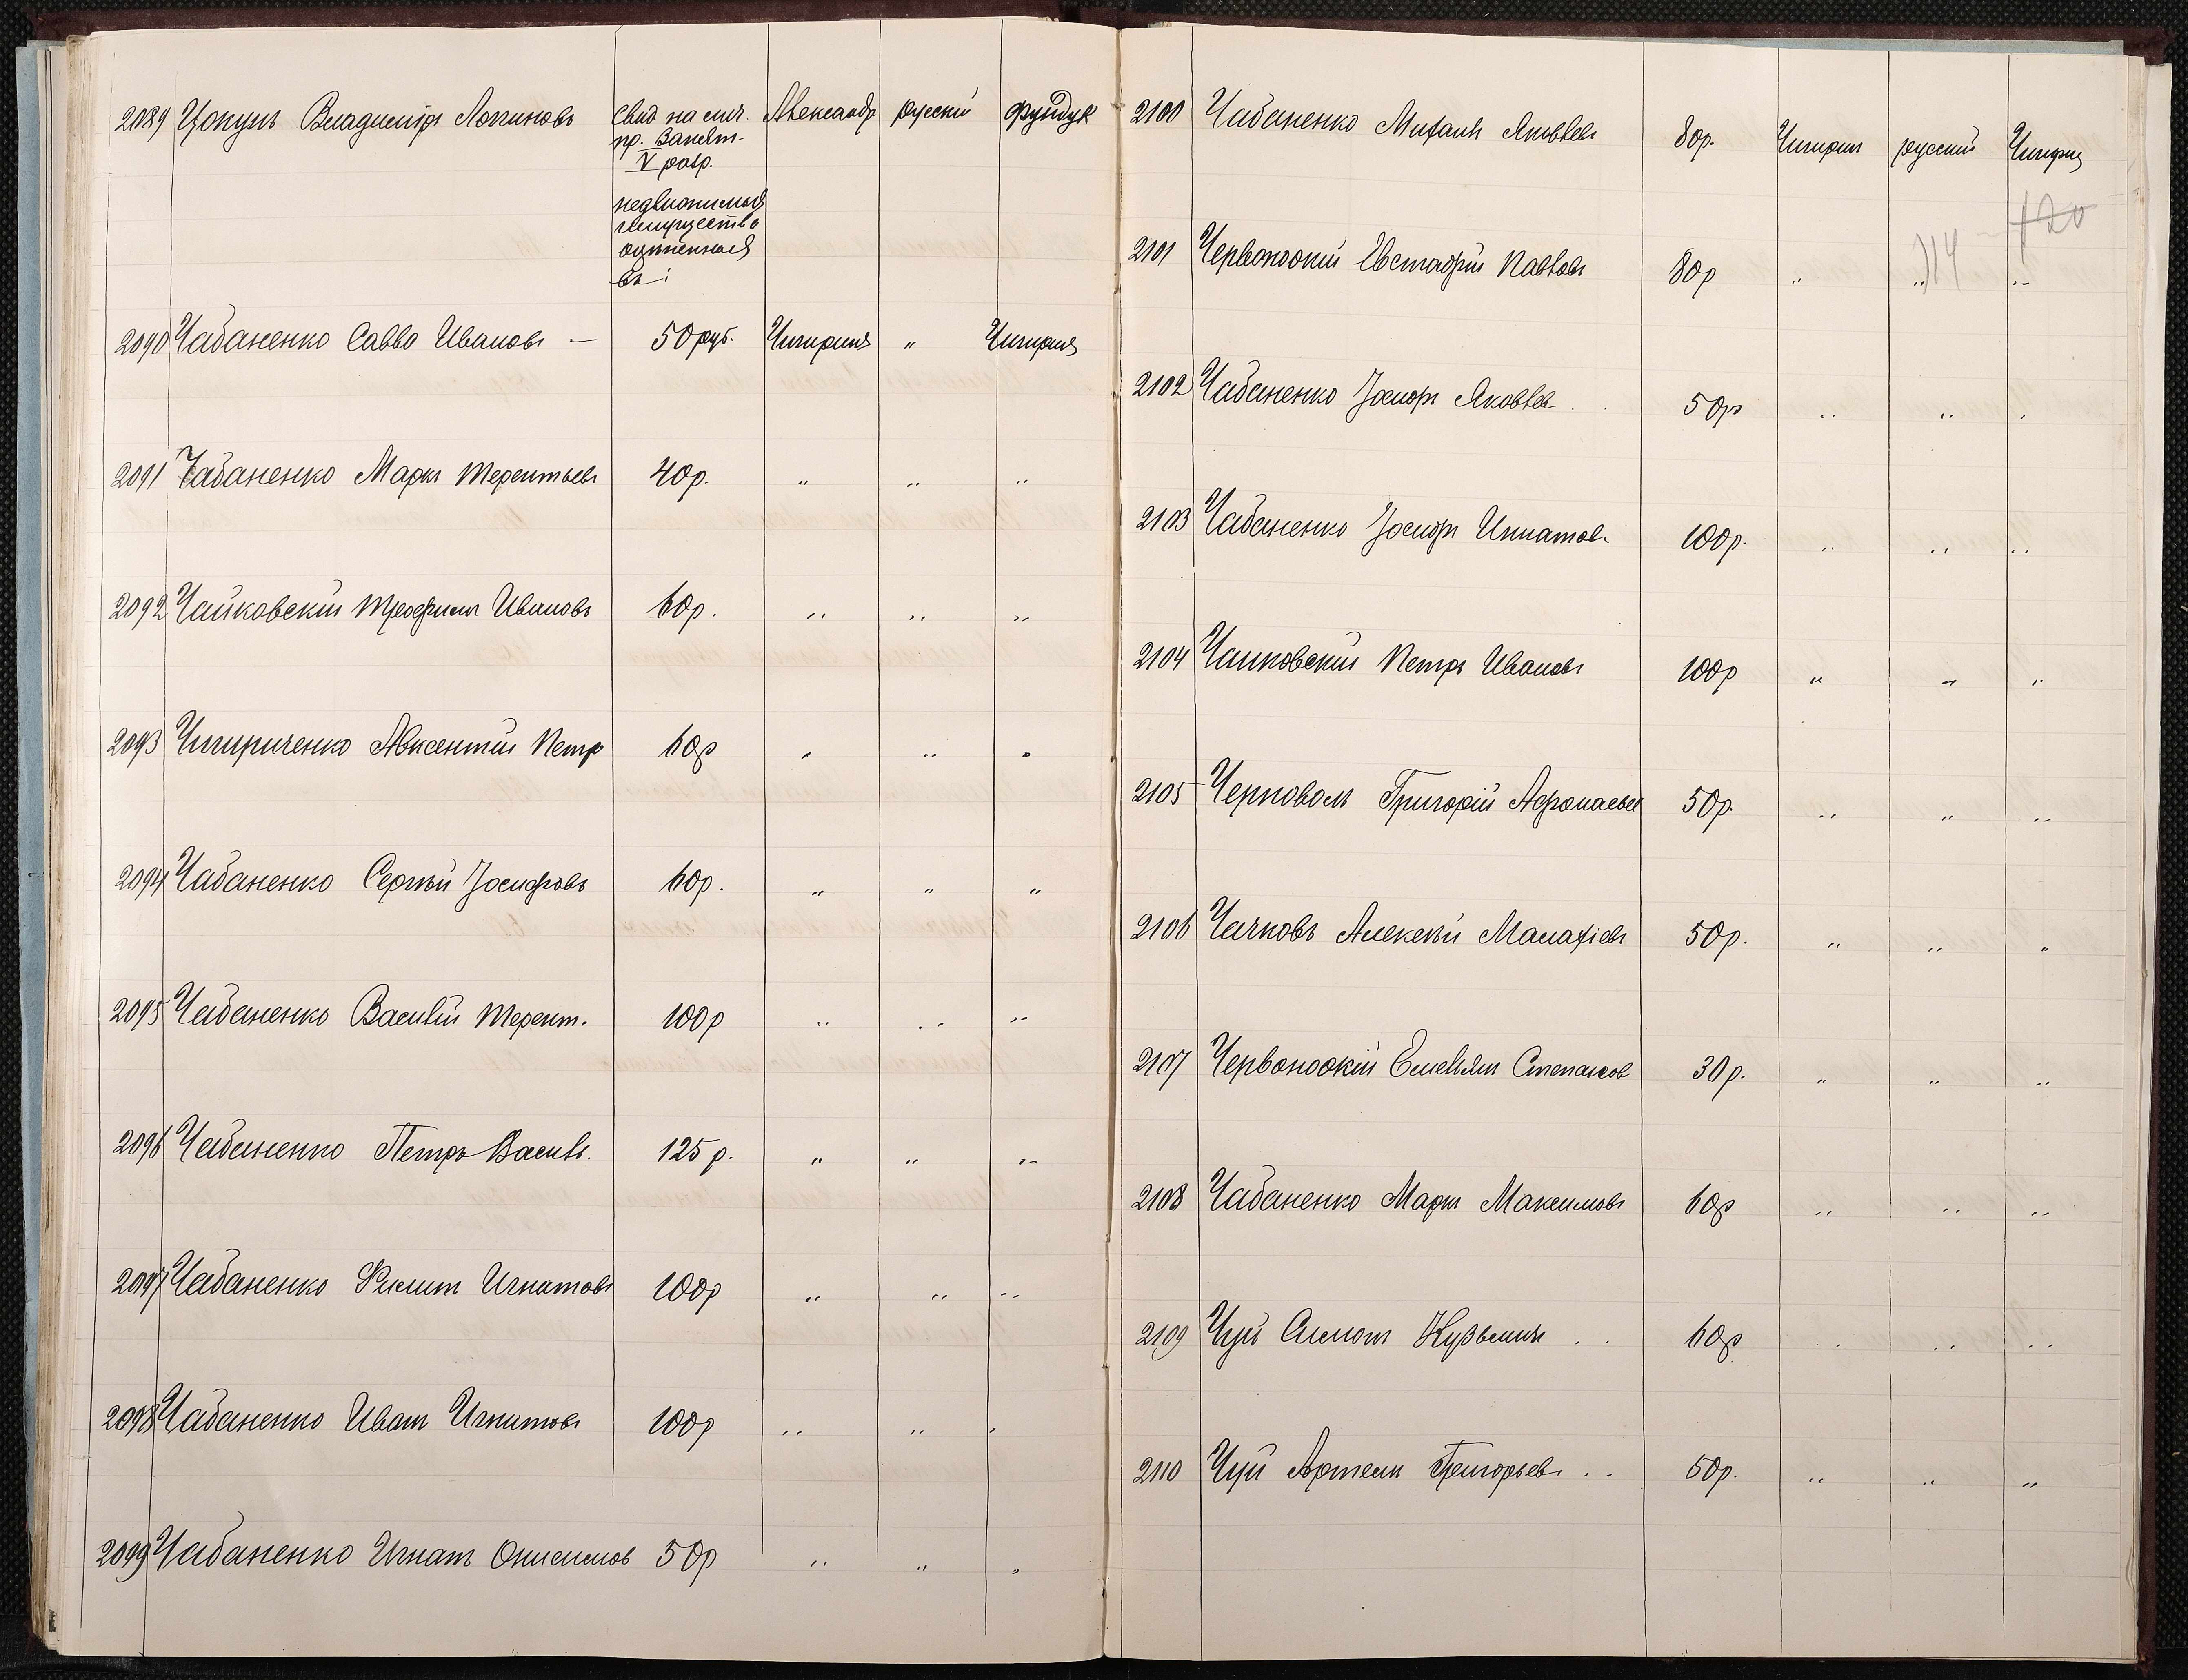 2089 Цокунъ Владиміръ Логиновъ Свид на лич. Александр русскій Фундук
пр. Занят.
V разр.
недвижимыя
имущество
оцѣненныя
въ:
2090 Чабаненко Савва Ивановъ — 50 руб. Чигирин „ Чигирин
2091 Чабаненко Маркъ Терентьевъ 40р. „ „ „
2092 Чайковскій Трофимъ Ивановъ 60р. „ „ „
2093 Чигириченко Авксентій Петр 60р „ „ „
2094 Чабаненко Сергѣй Іосифовъ 60р. „ „ „
2095 Чабаненко Василій Терент. 100р „ „ „
2096 Чабаненко Петръ Васил. 125р. „ „ „
2097 Чабаненко Игнатовъ 100р „ „ „
2098 Чабаненко Иванъ Игнатовъ 100р „ „ „
2099 Чабаненко Игнатъ Онисимов 50р „ „ „
2100 Чабаненко Михаилъ Яковлевъ 80р. Чигирин русскій Чигирин
120
114
2101 Червоноокій Евстафій Павловъ 80р „ „ „
2102 Чабаненко Іосифъ Яковлев 50р „ „ „
2103 Чабаненко Іосифъ Игнатов. 100р. „ „ „
2104 Чайковскій Петръ Ивановъ 100р „ „ „
2105 Черноволъ Григорій Афонасьев 50р. „ „ „
2106 Чачковъ Алексѣй Малахіевъ 50р. „ „ „
2107 Червоноокій Емельянъ Степанов 30р. „ „ „
2108 Чабаненко Маркъ Максимовъ 60р „ „ „
2109 Чуй Кузьминъ 60р „ „ „
2110 Чуй Артемъ Григорьевъ 50р. „ „ „